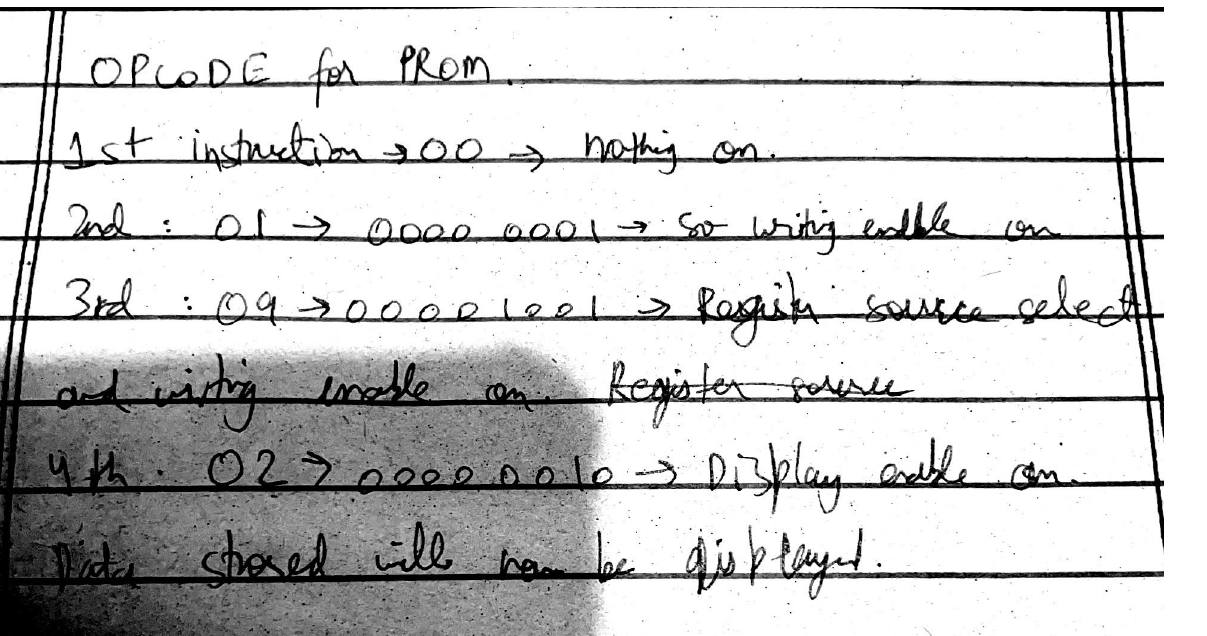 OPCODE for PROM.
1st instruction → 00 → nothing on.
2nd : 01 → 0000 0001 → so writing enable on
3rd : 09 → 00001001 → Register source select
and writing enable on. Register source
4th. 02 → 0000 0010 → Display enable on.
Data stored will now be displayed.